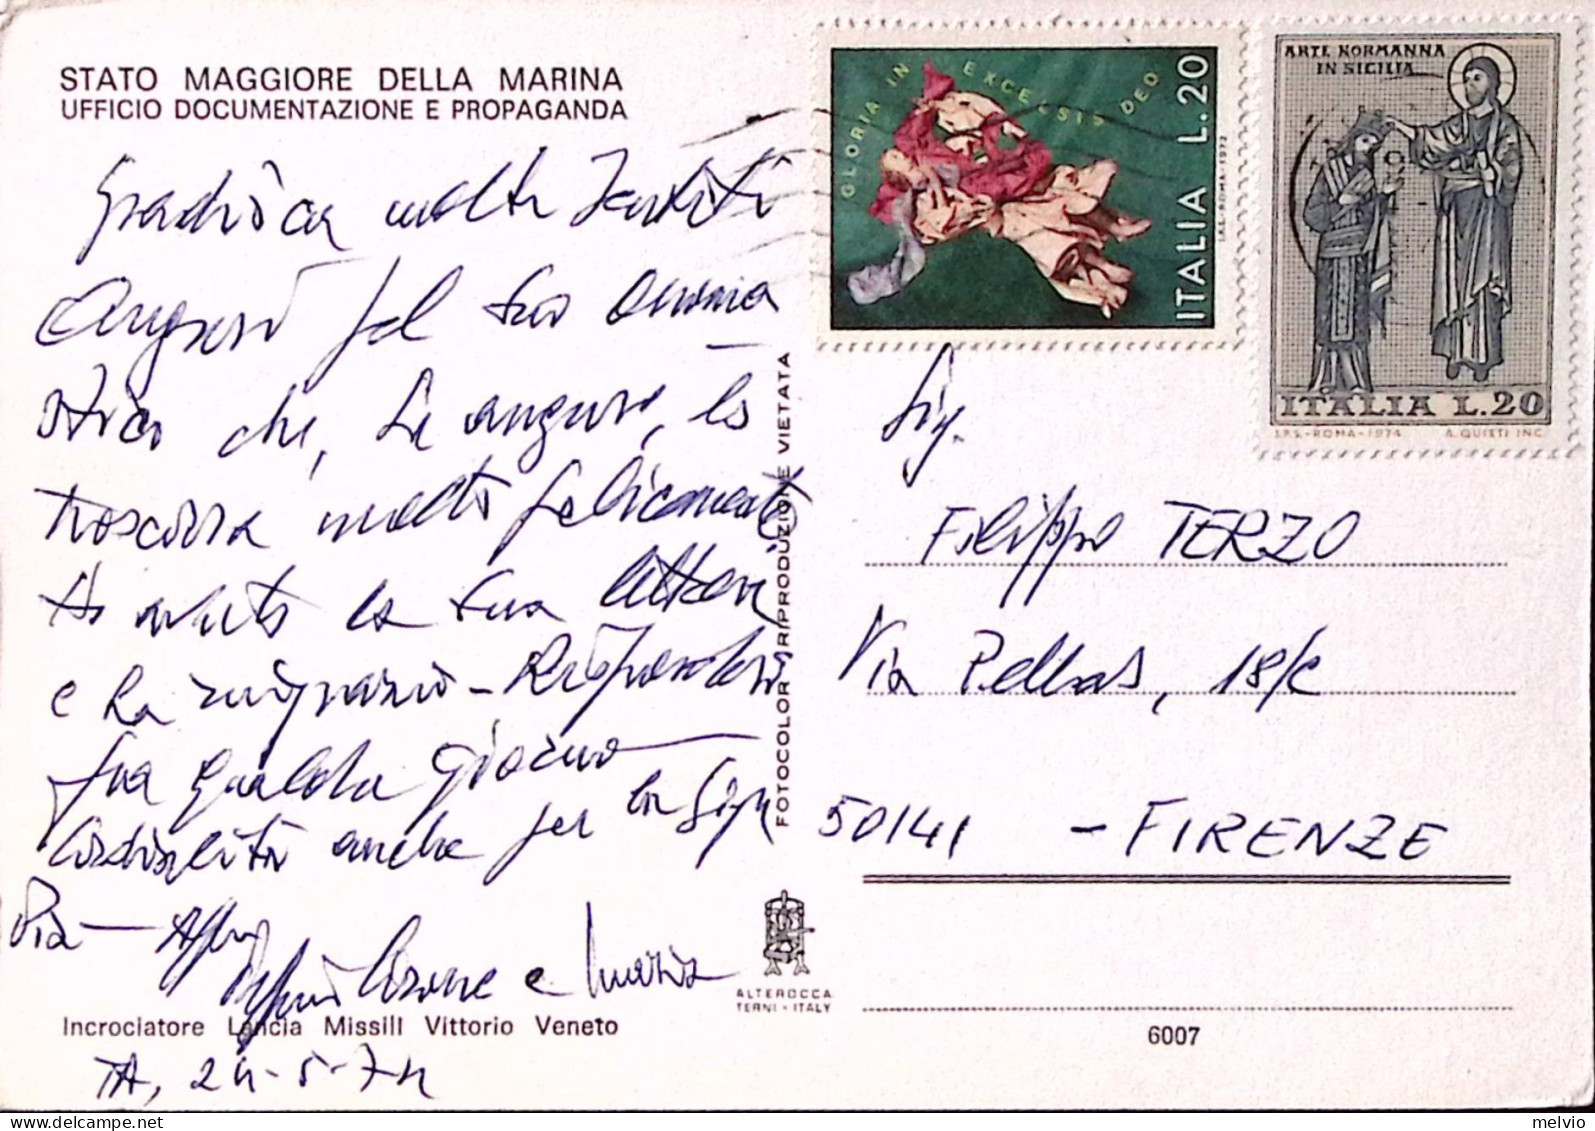 STATO MAGGIORE DELLA MARINA
UFFICIO DOCUMENTAZIONE E PROPAGANDA
Gradisca molti
Auguri pel Suo onoma
stico che, Le auguro, lo
trascorra molto felicemente
Ho avuto la Sua lettera
e La ringrazio - Risponderò
fra qualche giorno
Cordialità anche per la Sig.ra
Pia -
e Maria
Incrociatore Lancia Missili Vittorio Veneto
TA, 24-5-74
FOTOCOLOR RIPRODUZIONE VIETATA
ALTEROCCA
TERNI - ITALY
GLORIA IN EXCELSIS DEO
ITALIA L.20
I.P.S.-ROMA-1972
ARTE NORMANNA
IN SICILIA
ITALIA L.20
I.P.S.-ROMA-1974 A. QUIETI INC.
Sig.
Filippo TERZO
Via Pellas, 18/c
50141 - FIRENZE
6007
melvio